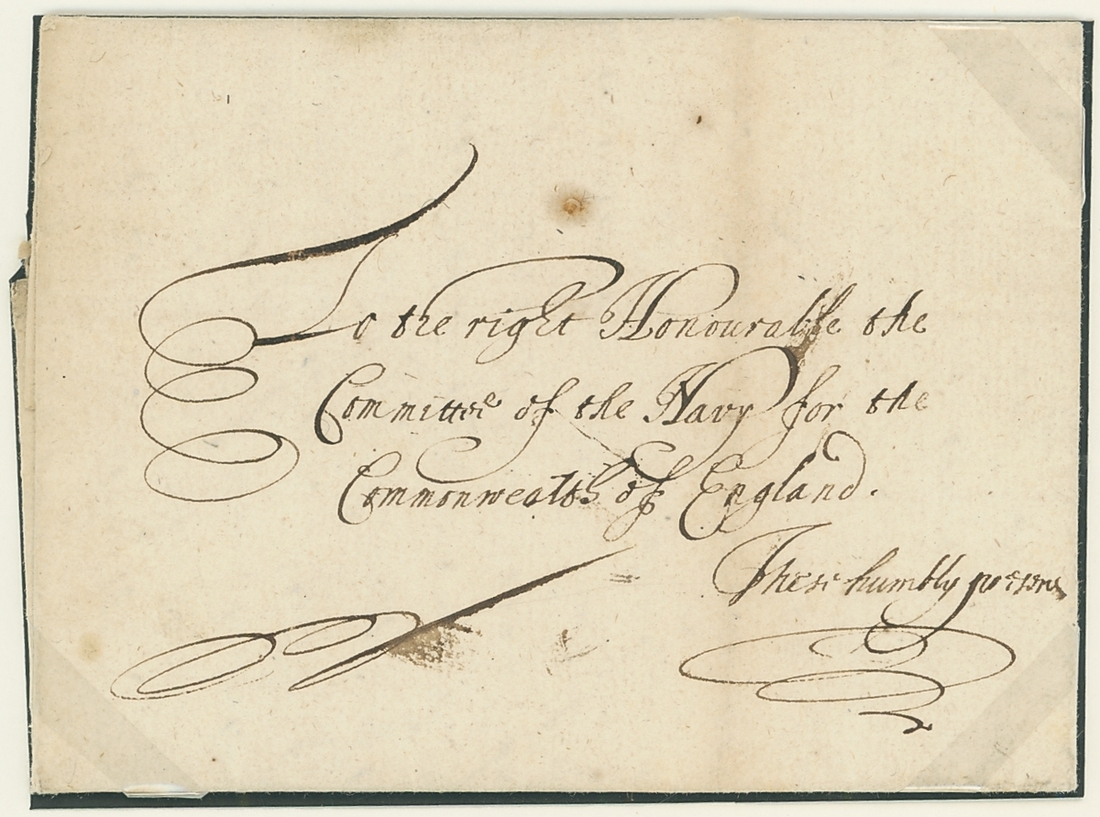 To the right Honourable the
Committee of the Navy for the
Commonwealth of England.
These humbly present